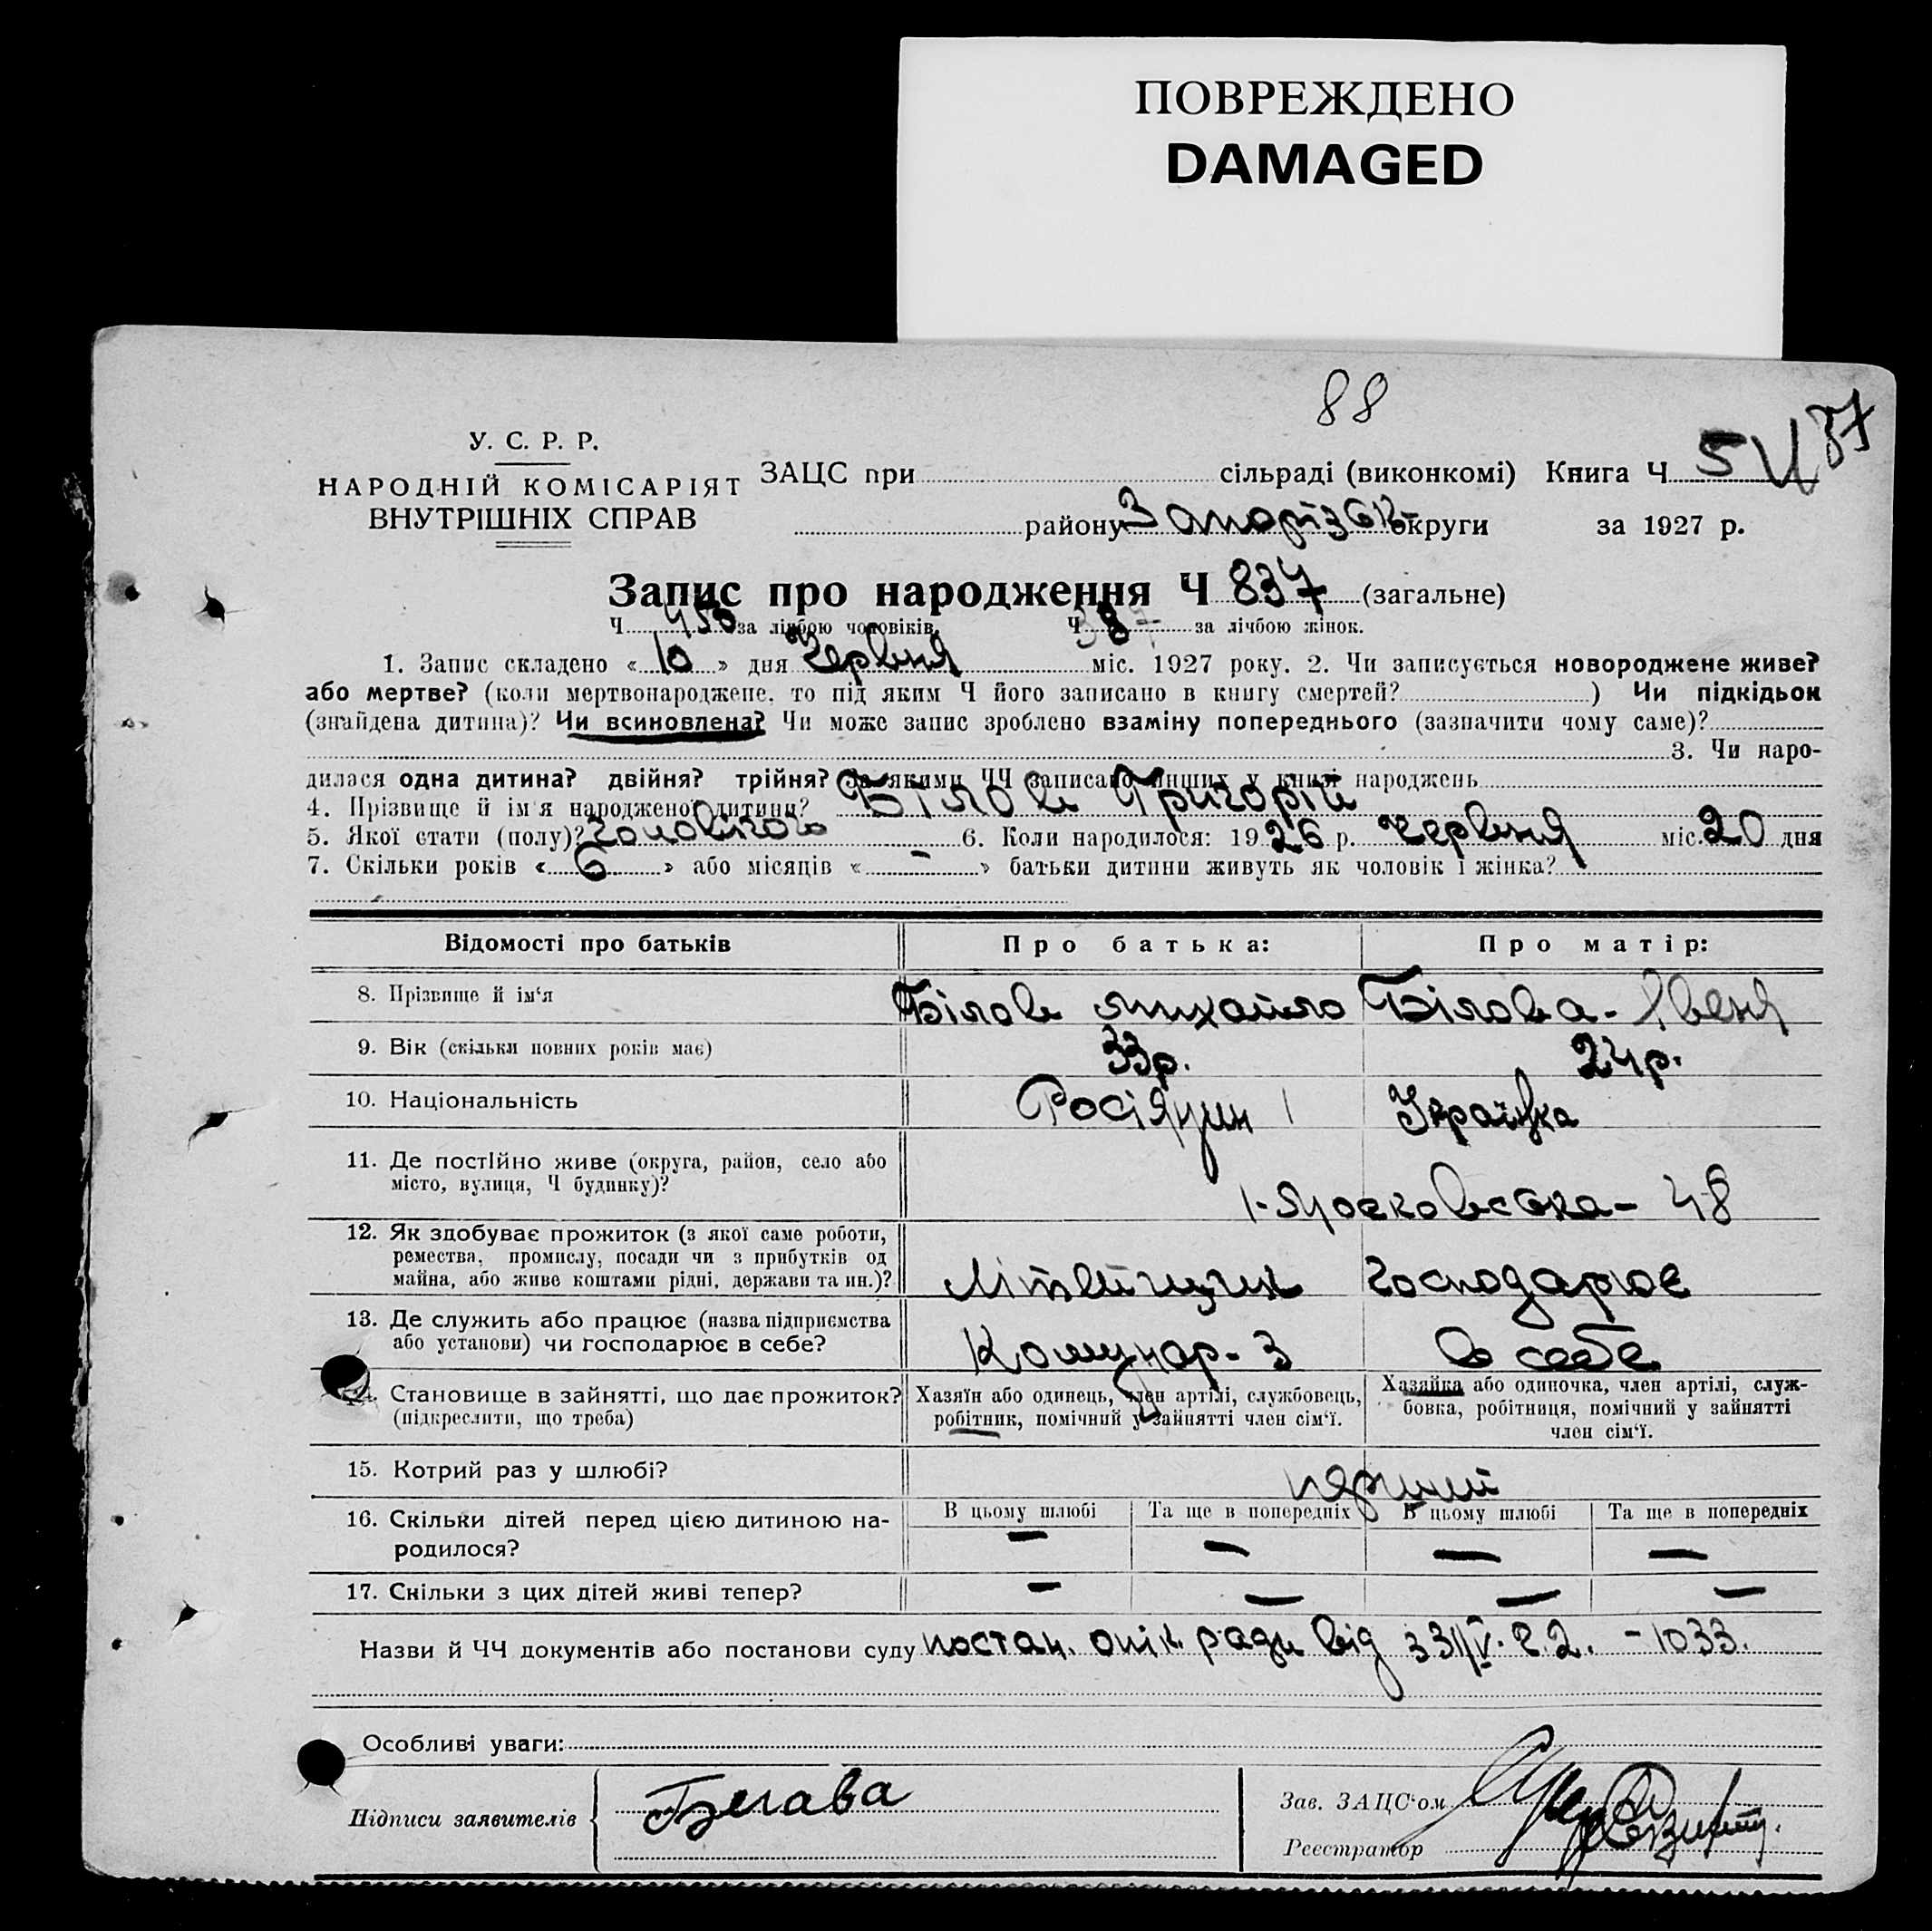 ПОВРЕЖДЕНО
DAMAGED
88
У. С. Р. Р.
НАРОДНІЙ КОМІСАРІЯТ
ВНУТРІШНІХ СПРАВ
ЗАЦС при сільраді (виконкомі) Книга Ч 5
87
району Запорізьк округи за 1927 р.
Запис про народження Ч 837 (загальне)
Ч 450 за лічбою чоловіків, Ч 387 за лічбою жінок.
1. Запис складено « 10 » дня Червня міс. 1927 року. 2. Чи записується новороджене живе?
або мертве? (коли мертвонароджене, то під яким Ч його записано в книгу смертей? ) Чи підкідьок
(знайдена дитина)? Чи всиновлена? Чи може запис зроблено взаміну попереднього (зазначити чому саме)?
3. Чи наро-
дилася одна дитина? двійня? трійня? За якими ЧЧ записано інших у книзі народжень
4. Прізвище й ім'я народженої дитини? Білов Григорій
5. Якої стати (полу)? чоловічого 6. Коли народилося: 1926 р. червня міс. 20 дня
7. Скільки років « 6 » або місяців « - » батьки дитини живуть як чоловік і жінка?
Відомості про батьків Про батька: Про матір:
8. Прізвище й ім'я Білов Михайло Білова-Явеня
9. Вік (скільки повних років має) 33р. 24р.
10. Національність Росіянин Українка
11. Де постійно живе (округа, район, село або
місто, вулиця, Ч будинку)?
48
12. Як здобуває прожиток (з якої саме роботи,
ремества, промислу, посади чи з прибутків од
майна, або живе коштами рідні, держави та ин.)?
Літейщик Господарює
13. Де служить або працює (назва підприємства
або установи) чи господарює в себе?
Комунар-3 в себе
14. Становище в зайнятті, що дає прожиток?
(підкреслити, що треба)
Хазяїн або одинець, член артілі, службовець,
робітник, помічний у зайнятті член сім'ї.
Хазяйка або одиночка, член артілі, служ-
бовка, робітниця, помічний у зайнятті
член сім'ї.
15. Котрий раз у шлюбі? перший
16. Скільки дітей перед цією дитиною на-
родилося?
В цьому шлюбі Та ще в попередніх В цьому шлюбі Та ще в попередніх
— — — —
17. Скільки з цих дітей живі тепер? — — — —
Назви й ЧЧ документів або постанови суду постан. опік. ради від - 1033.
Особливі уваги:
Підписи заявителів
Зав. ЗАЦС'ом
Реєстратор